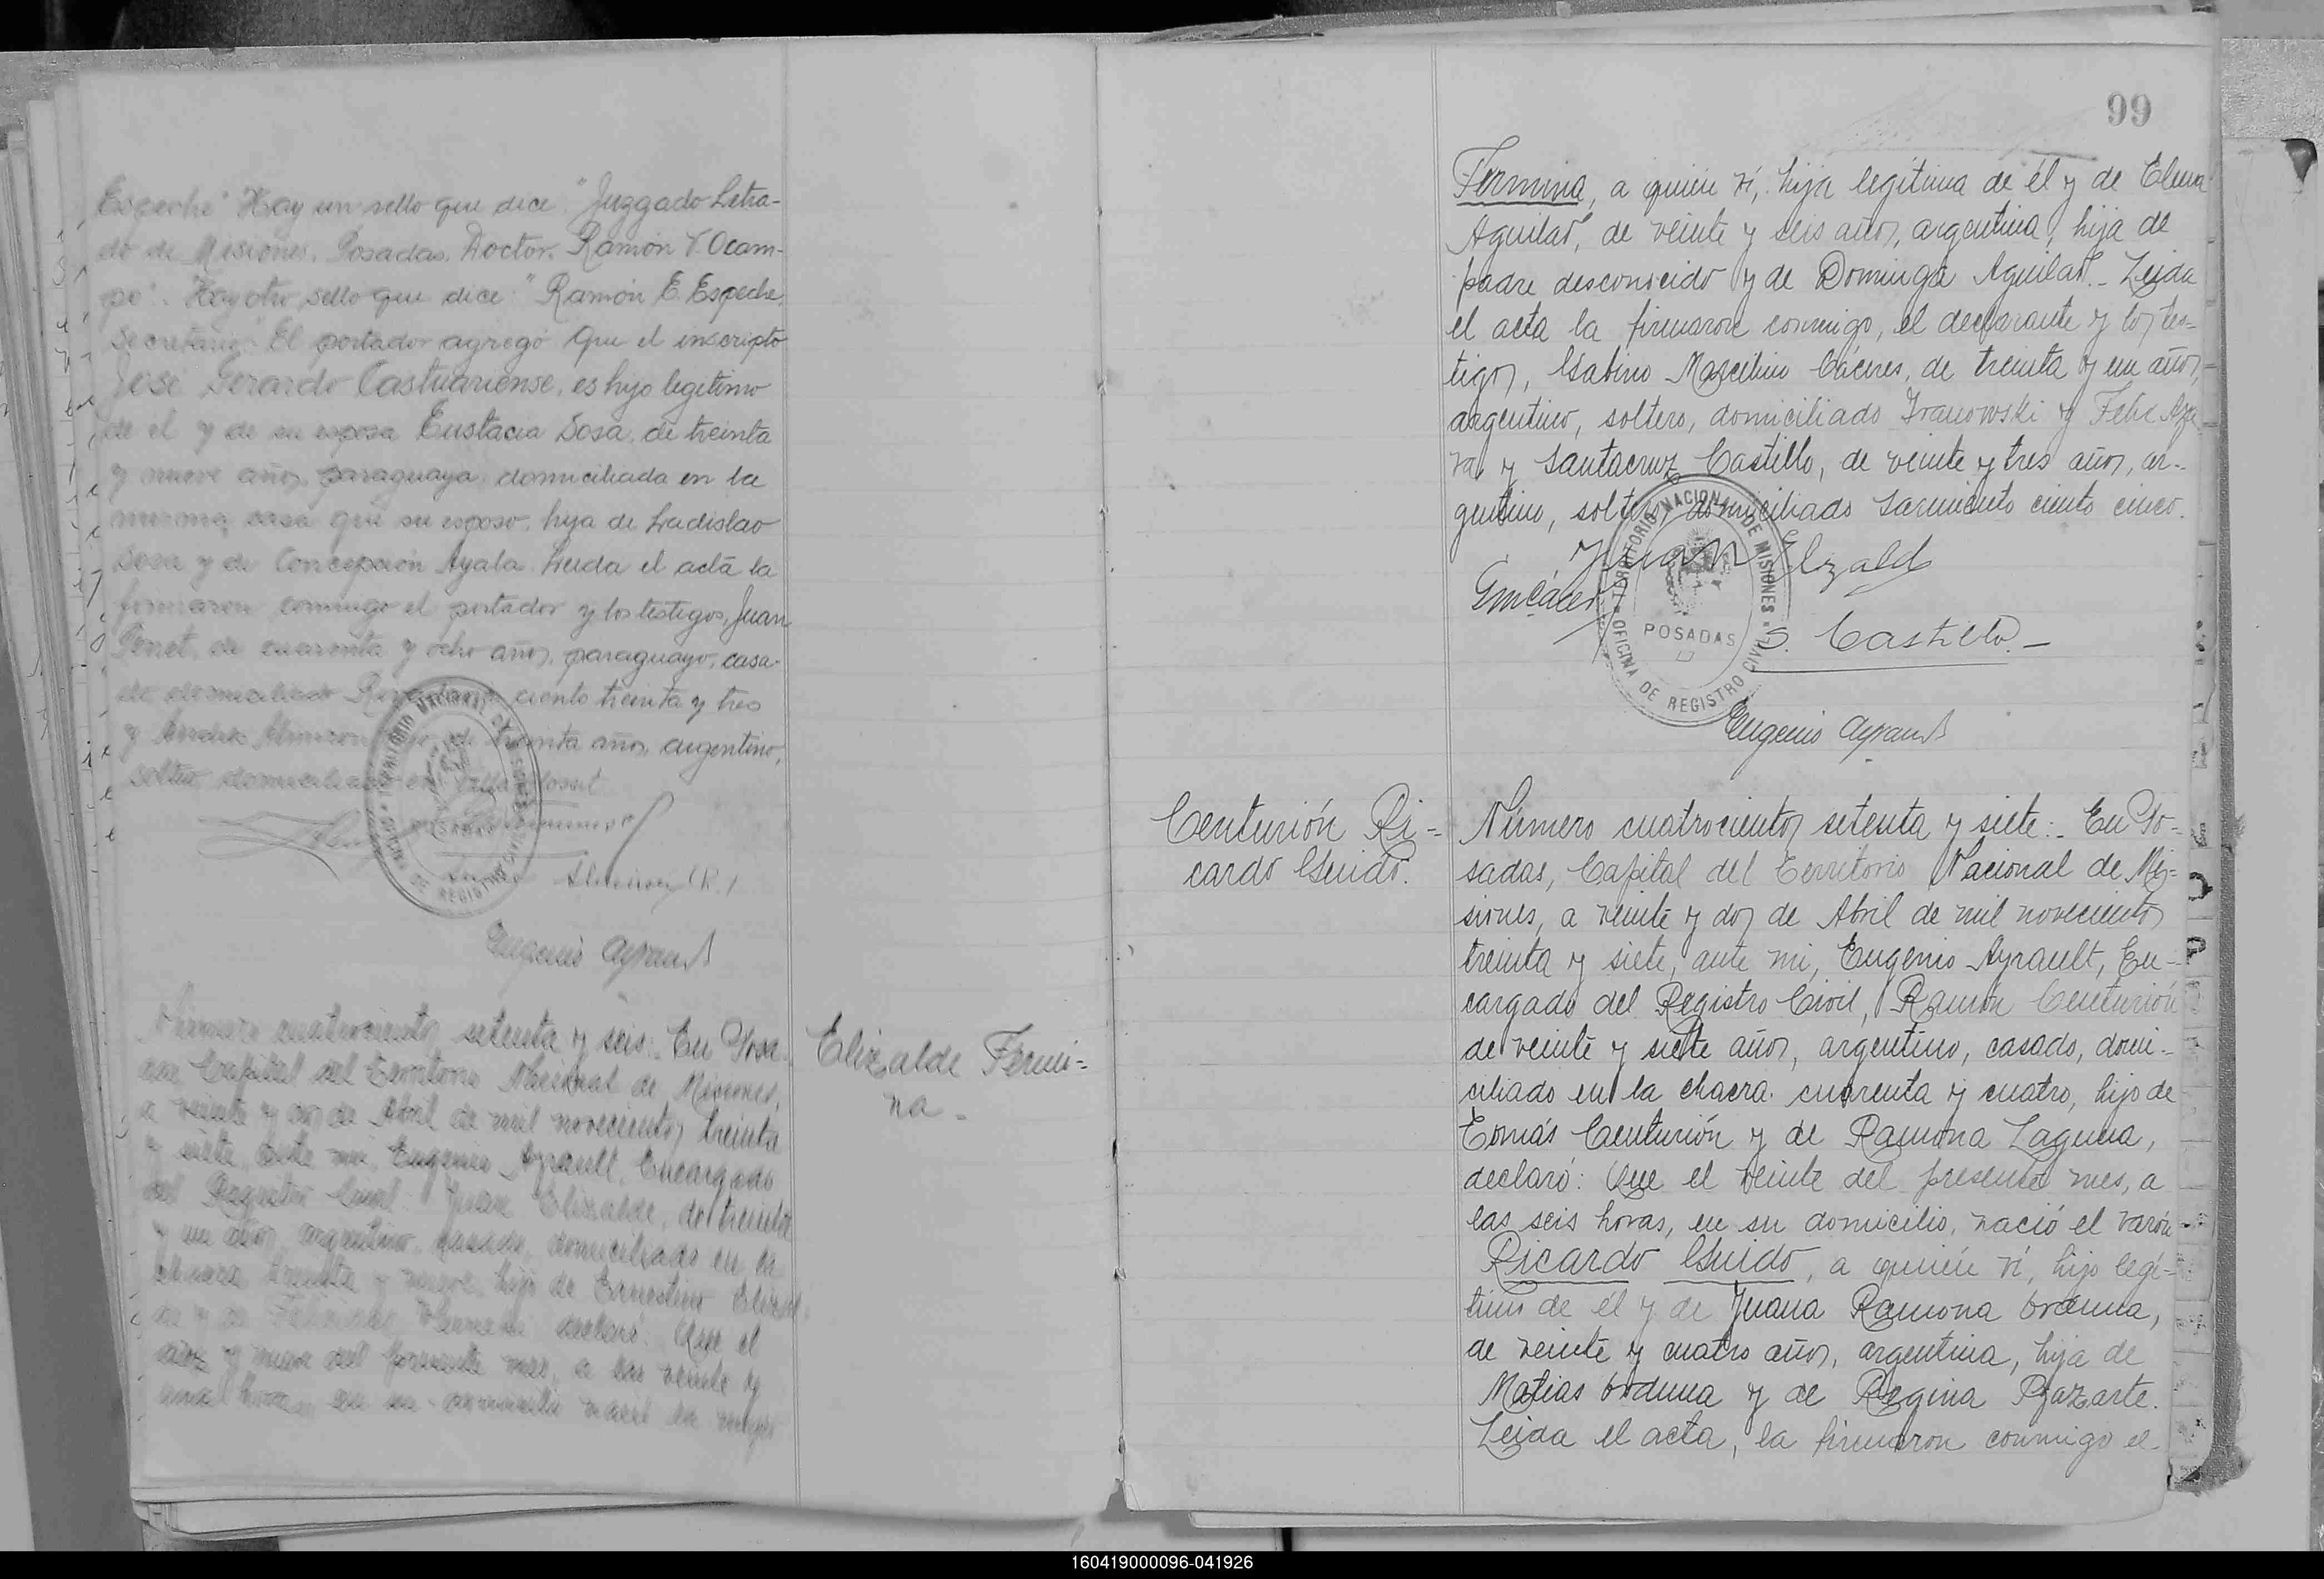 Espeche" Hay un sello que dice "Juzgado Letra-
do de Misiones. Posadas. Doctor. Ramón V. Ocam-
po". Hay otro sello que dice: "Ramón E. Espeche
Secretario". El portador agregó Que el inscripto
José Gerardo Castuariense, es hijo legitimo
de el y de su esposa Eustacia Sosa, de treinta
y nueve años, paraguaya, domiciliada en la
misma casa que su esposo, hija de Ladislao
Sosa y de Concepción Ayala. Leida el acta la
firmaron conmigo el portador y los testigos, Juan
Penet, de cuarenta y ocho años, paraguayo, casa-
do domiciliado ciento treinta y tres
y Andrés de treinta años, argentino,
soltero domiciliado en Villa
TERRITORIO NACIONAL DE MISIONES
OFICINA DE REGISTRO CIVIL
POSADAS
(R.)
Eugenio Ayrault
Número cuatrocientos setenta y seis:- En Posa-
das Capital del Territorio Nacional de Misiones,
a veinte y dos de Abril de mil novecientos treinta
y siete, ante mi, Eugenio Ayrault, Encargado
del Registro Civil, Juan Elizalde, de treinta
y un años, argentino, casado, domiciliado en la
chacra treinta y nueve, hijo de Ernestino Elizal-
de y de declaró: Que el
diez y nueve del presente mes, a las veinte y
una horas, en su domicilio nació la mujer
Elizalde Fermi-
na.-
99
Fermina, a quien ví, hija legítima de él y de Elena
Aguilar, de veinte y seis años, argentina, hija de
padre desconocido y de Dominga Aguilar.- Leida
el acta la firmaron conmigo, el declarante y los tes-
tigos, Gabino Marcelino Cáceres, de treinta y un años,
argentino, soltero, domiciliado Ivanowski y Felix Aza
ra y Santacruz Castillo, de veinte y tres años, ar-
gentino, soltero, domiciliado Sarmiento ciento cinco.
Juan Elzald
GmCácer
TERRITORIO NACIONAL DE MISIONES
OFICINA DE REGISTRO CIVIL
POSADAS
S. Castillo.-
Eugenio Ayrault
Centurión Ri-
cardo Guido.
Número cuatrocientos setenta y siete:- En Po-
sadas, Capital del Territorio Nacional de Mi-
siones, a veinte y dos de Abril de mil novecientos
treinta y siete, ante mi, Eugenio Ayrault, En-
cargado del Registro Civil, Ramón Centurión
de veinte y siete años, argentino, casado, domi-
ciliado en la chacra cuarenta y cuatro, hijo de
Tomás Centurión y de Ramona Laguna,
declaró: Que el veinte del presente mes, a
las seis horas, en su domicilio, nació el varón
Ricardo Guido, a quién ví, hijo legí-
timo de él y de Juana Ramona Orduna,
de veinte y cuatro años, argentina, hija de
Matias Orduna y de Regina Rjazarte.
Leida el acta, la firmaron conmigo el
160419000096-041926